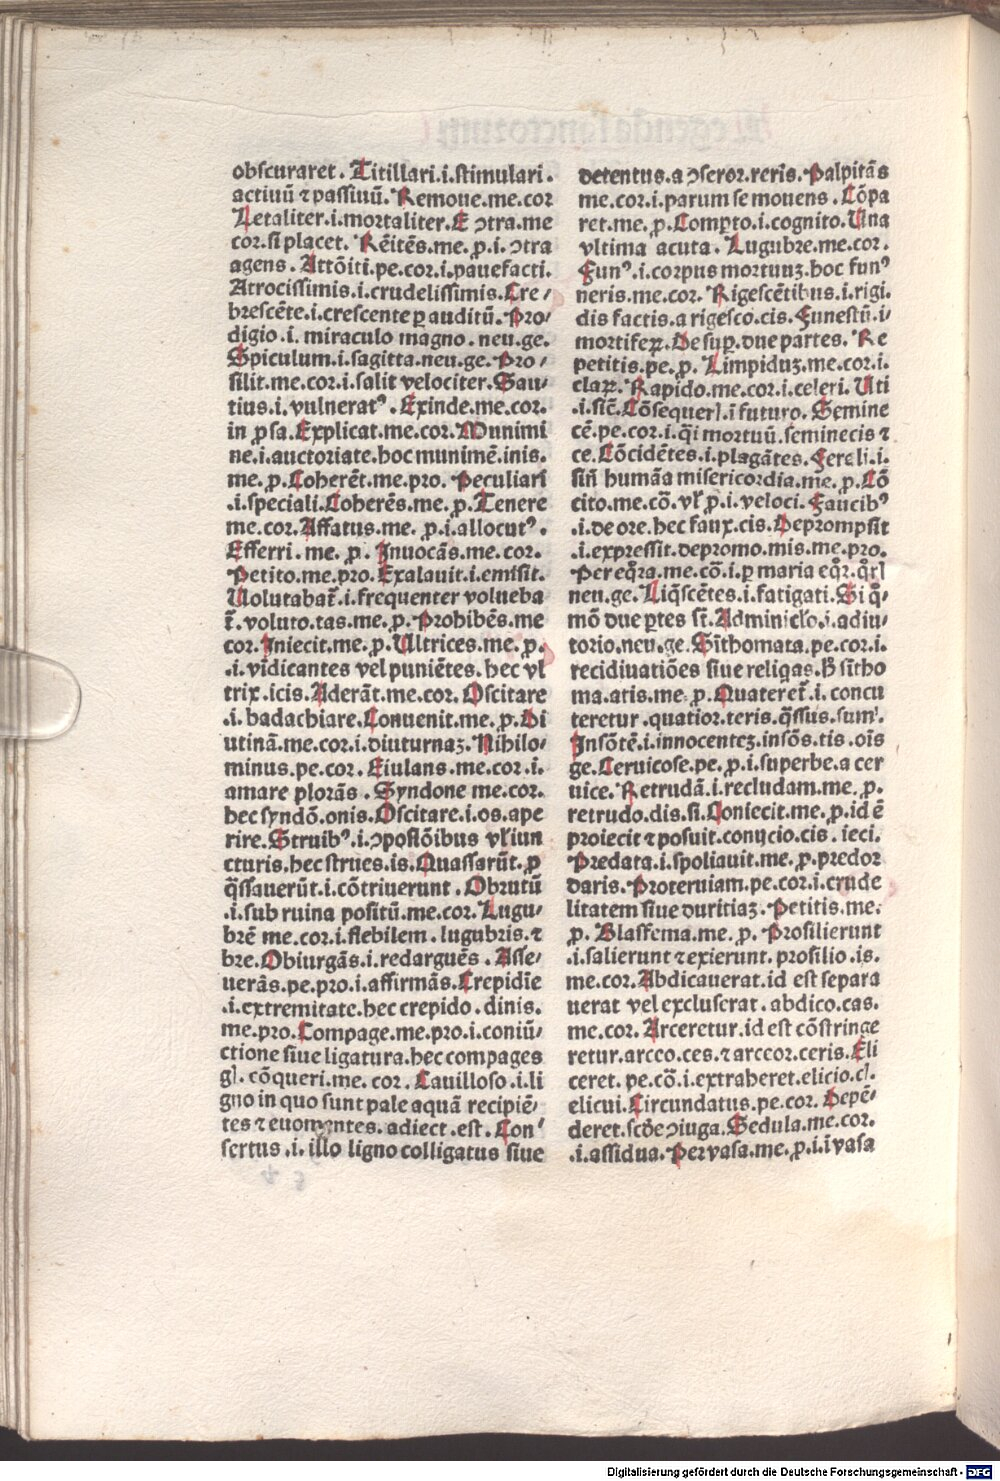 obscuraret. Titillari.i.stimulari.
actiuū ⁊ passiuū. Remoue.me.cor
Letaliter.i.mortaliter. E ↄtra.me
cor.si placet. Rēitēs.me.ꝓ.i.ↄtra
agens. Attōiti.pe.cor.i.pauefacti.
Atrocissimis.i.crudelissimis. Cre/
brescēte.i.crescente ꝑ auditū. Pro/
digio.i. miraculo magno. neu.ge.
Spiculum.i.sagitta.neu.ge. Pro/
silit.me.cor.i.salit velociter. Sau/
tius.i. vulneratꝰ. Exinde.me.cor.
in ꝓsa. Explicat.me.cor. Munimi
ne.i.auctoriate.hoc munimē.inis.
me.ꝓ. Coherēt.me.pro. Peculiari
.i.speciali. Coherēs.me.ꝓ. Tenere
me.cor. Affatus.me. ꝓ.i.allocutꝰ.
Efferri.me.ꝓ. Inuocās.me.cor.
Petito.me.pro. Exalauit.i.emisit.
Uolutabat̄.i.frequenter volueba
t̄.voluto.tas.me.ꝓ. Prohibēs.me
cor. Iniecit.me.ꝓ. Ultrices.me.ꝓ.
.i. vīdicantes vel puniētes. hec vl
trix.icis. Aderāt.me.cor. Oscitare
.i. badachiare. Conuenit.me.ꝓ. Di
utinā.me.cor.i.diuturnaꝫ. Nihilo/
minus.pe.cor. Eiulans.me.cor.i.
amare plorās. Syndone me.cor.
hec syndō.onis. Oscitare.i.os.ape
rire. Struibꝰ.i.ↄpositōibus vl̄ iun
cturis.hec strues.is. Quassarūt.ꝓ
q̄ssauerūt.i.cōtriuerunt. Obrutū
.i.sub ruina positū.me.cor. Lugu/
brē me.cor.i.flebilem.lugubris.⁊
bre. Obiurgās.i.redarguēs. Asse/
uerās.pe.pro.i.affirmās. Crepidīe
.i.extremitate.hec crepido.dinis.
me.pro. Compage.me.pro.i.coniū/
ctione siue ligatura.hec compages
gl. cōqueri.me. cor. Cauilloso.i.li
gno in quo sunt pale aquā recipiē/
tes ⁊ euomentes. adiect.est. Con/
sertus.i. illo ligno colligatus siue
detentus.a ↄseror.reris. Palpitās
me.cor.i.parum se mouens. Cōpa
ret.me.ꝓ. Comꝑto.i.cognito. Una
vltima acuta. Lugubre.me.cor.
Funꝰ.i.corpus mortuuꝫ.hoc funꝰ
neris.me.cor. Rigescētibus.i.rigi.
dis factis.a rigesco.cis. Funestū.i/
mortifeꝝ. De suꝑ.due partes. Re
petitis.pe.ꝓ. Limpiduꝫ.me.cor.i.
claꝝ. Rapido.me.cor.i.celeri. Uti
.i.sic̄. Cōsequerl.ī futuro. Semine
cē.pe.cor.i.q̄i mortuū.seminecis ⁊
ce. Cōcidētes.i.plagātes. Ferali.i.
sin̄ humāa misericordia.me.ꝓ. Cō
cito.me.cō.vl̄ ꝓ.i.veloci. Faucibꝰ
.i.de ore.hec faux.cis. Deprompsit
.i.expressit.depromo.mis.me.pro.
Per eq̄ra.me.cō.i.ꝑ maria eq̄r.q̄rl
neu.ge. Liq̄scētes.i.fatigati. Si q̄/
mō due ꝑtes st̄. Adminiclo.i.adiu/
torio.neu.ge. Sīthomata.pe.cor.i.
recidiuatiōes siue reliqas.h̄ sītho
ma.atis.me.ꝓ. Quateret̄.i.concu
teretur.quatior.teris.q̄ssus.sum.
Insōtē.i.innocenteꝫ.insōs.tis.oīs
ge. Ceruicose.pe.ꝓ.i.superbe.a cer
uice. Retrudā.i.recludam.me.ꝓ.
retrudo.dis.si. Coniecit.me.ꝓ.id ē
proiecit ⁊ posuit.conycio.cis.ieci.
Predata.i.spoliauit.me.ꝓ.predor
daris. Proteruiam.pe.cor.i.crude
litatem siue duritiaꝫ. Petitis.me.
ꝓ. Blasfema.me.ꝓ. Prosilierunt
.i.salierunt ⁊ exierunt. prosilio.is.
me.cor. Abdicauerat.id est separa
uerat vel excluserat.abdico.cas.
me.cor. Arceretur.id est cōstringe
retur.arceo.ces.⁊ arceor.ceris. Eli
ceret. pe.cō.i.extraheret.elicio.cl.
elicui. Circundatus.pe.cor. Depē/
deret.scd̄e ↄiuga. Sedula.me.cor.
.i.assidua. Peruasa.me.ꝓ.i.iuasa
Digitalisierung gefördert durch die Deutsche Forschungsgemeinschaft - DFG